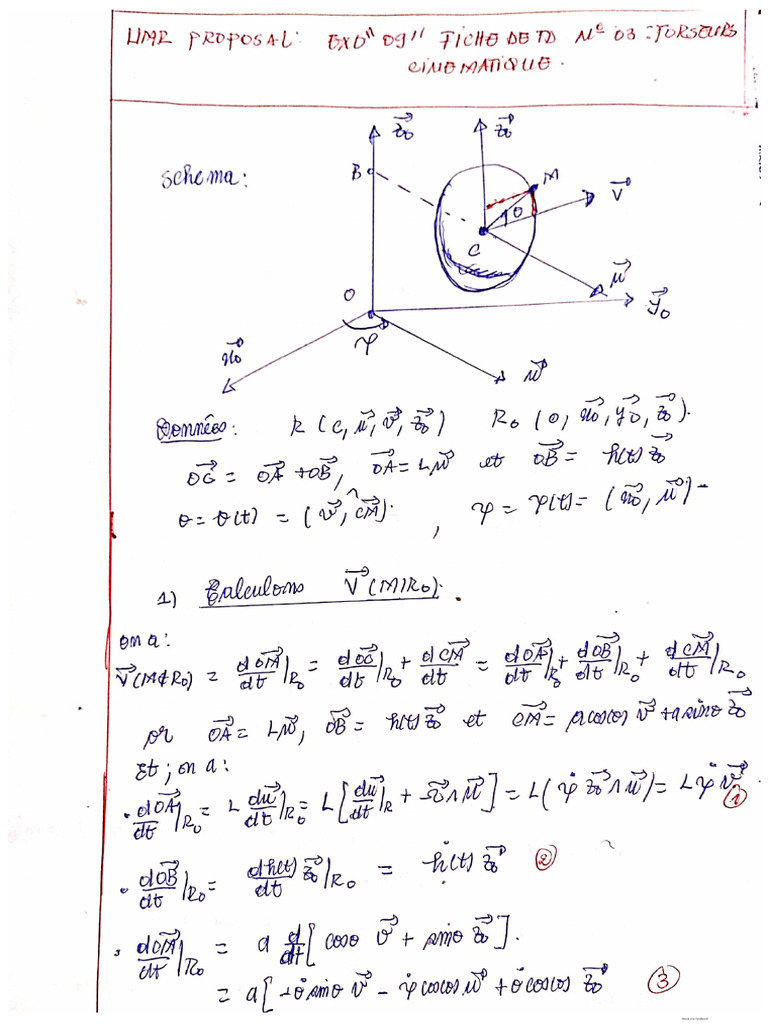 UMR PROPOSAL: EXO" 09" FICHE DE TD N° 03 : TORSEURS
CINEMATIQUE.
Schema:
z⃗₀
z⃗₀
B
M
v⃗
θ
C
u⃗
O
y⃗₀
ψ
x⃗₀
u⃗
Données: R (C, u⃗, v⃗, z⃗₀) R₀ (O, x⃗₀, y⃗₀, z⃗₀).
OC⃗ = OA⃗ + OB⃗, OA⃗ = L u⃗ et OB⃗ = h(t) z⃗₀
θ = θ(t) = (v⃗, CM⃗). , ψ = ψ(t) = (x⃗₀, u⃗)
1) Calculons V⃗(M/R₀).
on a:
V⃗(M/R₀) = dOM⃗/dt|R₀ = dOC⃗/dt|R₀ + dCM⃗/dt = dOA⃗/dt|R₀ + dOB⃗/dt|R₀ + dCM⃗/dt|R₀
or OA⃗ = L u⃗, OB⃗ = h(t) z⃗₀ et CM⃗ = a cosθ v⃗ + a sinθ z⃗₀
Et ; on a:
• dOA⃗/dt|R₀ = L du⃗/dt|R₀ = L [du⃗/dt|R + Ω⃗ ∧ u⃗] = L(ψ̇ z⃗₀ ∧ u⃗) = L ψ̇ v⃗ ①
• dOB⃗/dt|R₀ = dh(t)/dt z⃗₀|R₀ = ḣ(t) z⃗₀ ②
• dCM⃗/dt|R₀ = a d/dt [cosθ v⃗ + sinθ z⃗₀].
= a [-θ̇ sinθ v⃗ - ψ̇ cosθ u⃗ + θ̇ cosθ z⃗₀ ③